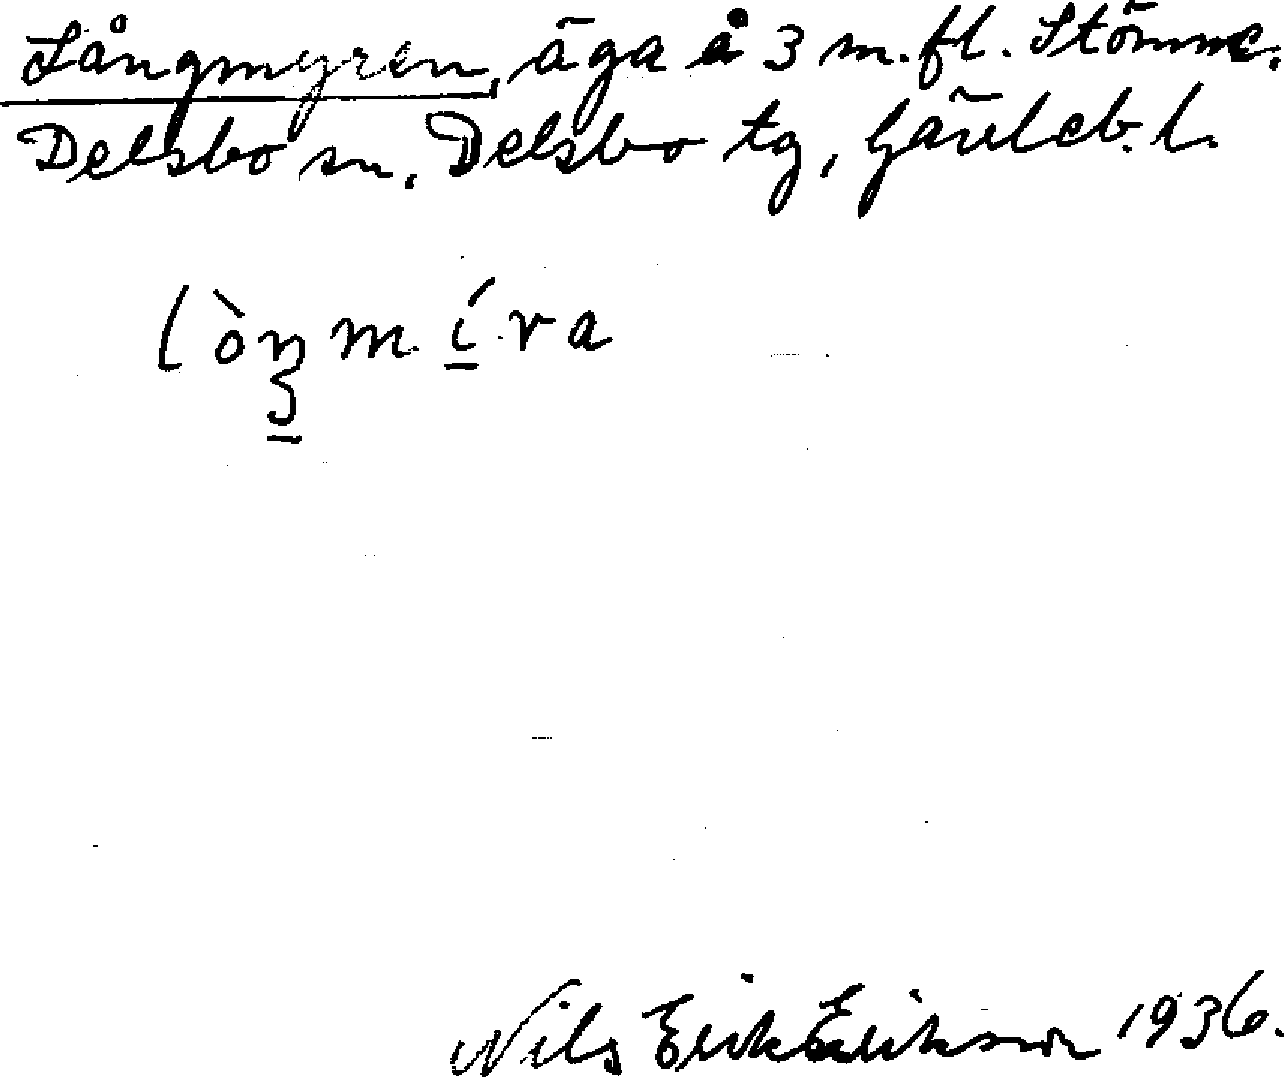 Långmyren, äga å 3 m.fl. Stömne,
Delsbo sn, Delsbo tg, Gävleb. l.
lòŋmíra
Nils Erik Erikson 1936.